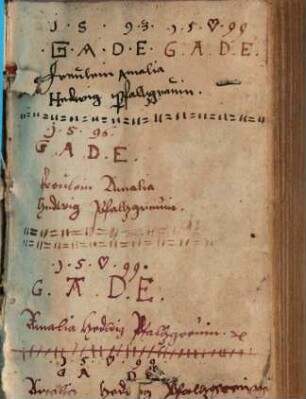 1 5 93 · 1 5 ♡ 99
G · A · D · E · G · A · D · E ·
Freulein Amalia
Hedwig Pfalzgrevin ·
1 5 96 ·
G · A · D · E ·
Freulein Amalia
Hedwig Pfalzgrevin ·
· 1 · 5 · ♡ · 99 ·
G · A · D · E ·
Amalia Hedwig Pfalzgrevin ·
1 5 ♡ 99
G A D E
Amalia Hedwig Pfalzgrevin